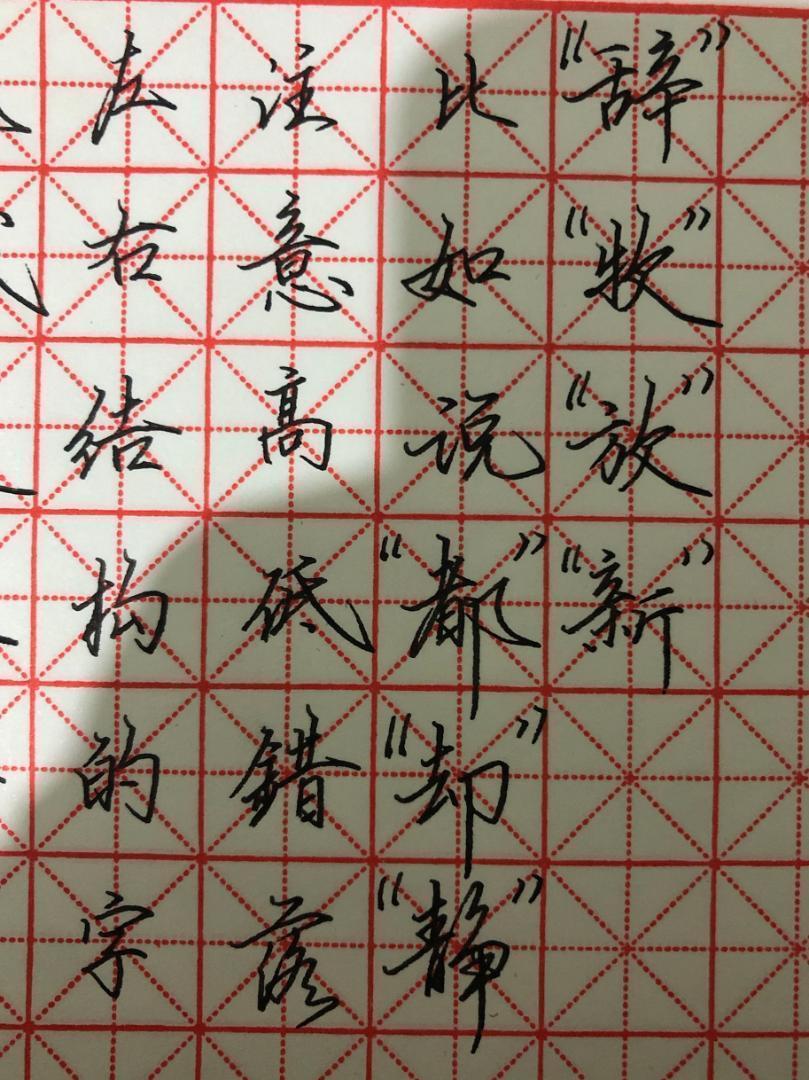 左右结构的字
注意高砥錯落
比如说“都”“却”“静”
“辞”“牧”“放”“新”